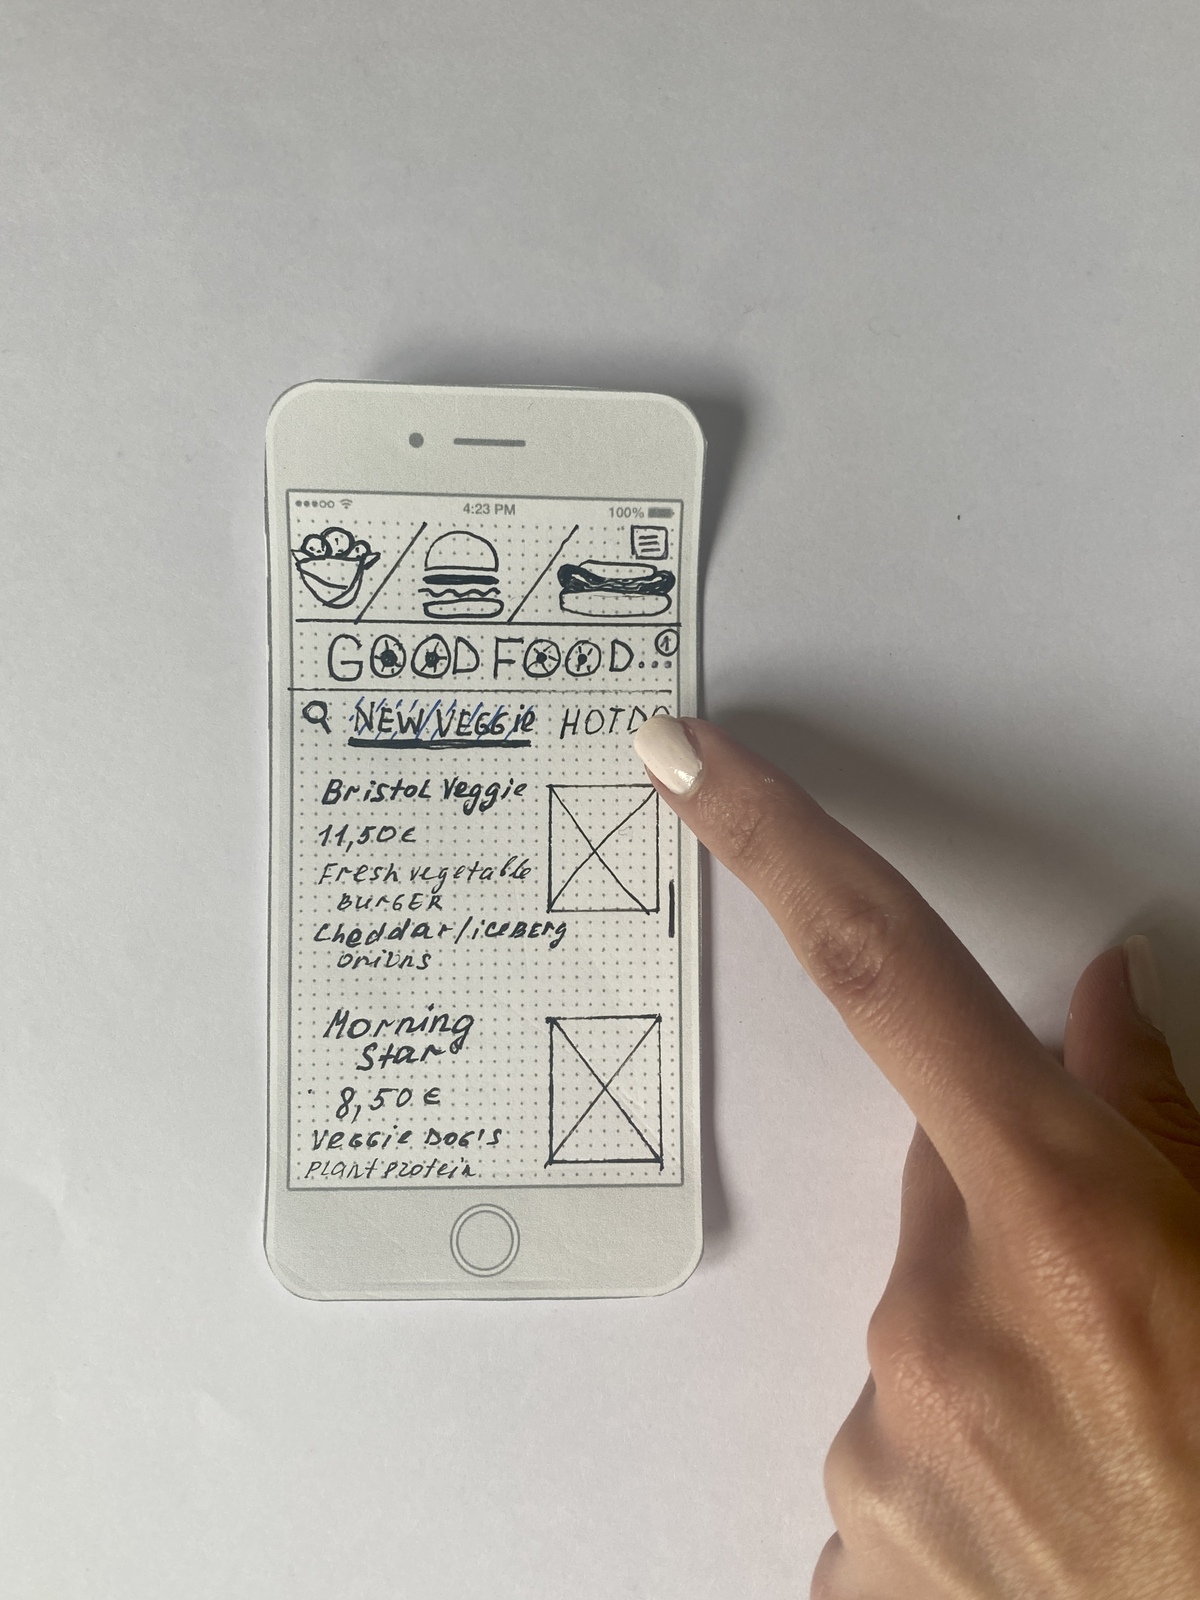 4:23 PM 100%
GOOD FOOD...
NEW VEGGiE HOTDO
Bristol Veggie
11,50€
Fresh vegetable
BURGER
Cheddar/iCEBERg
onions
Morning
Star
8,50€
VEGGiE DOG'S
PLANT Protein